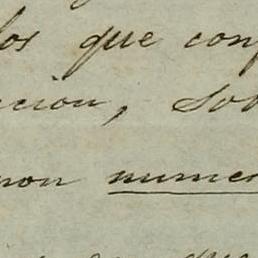 los que conf
cion, sob
non numer
que